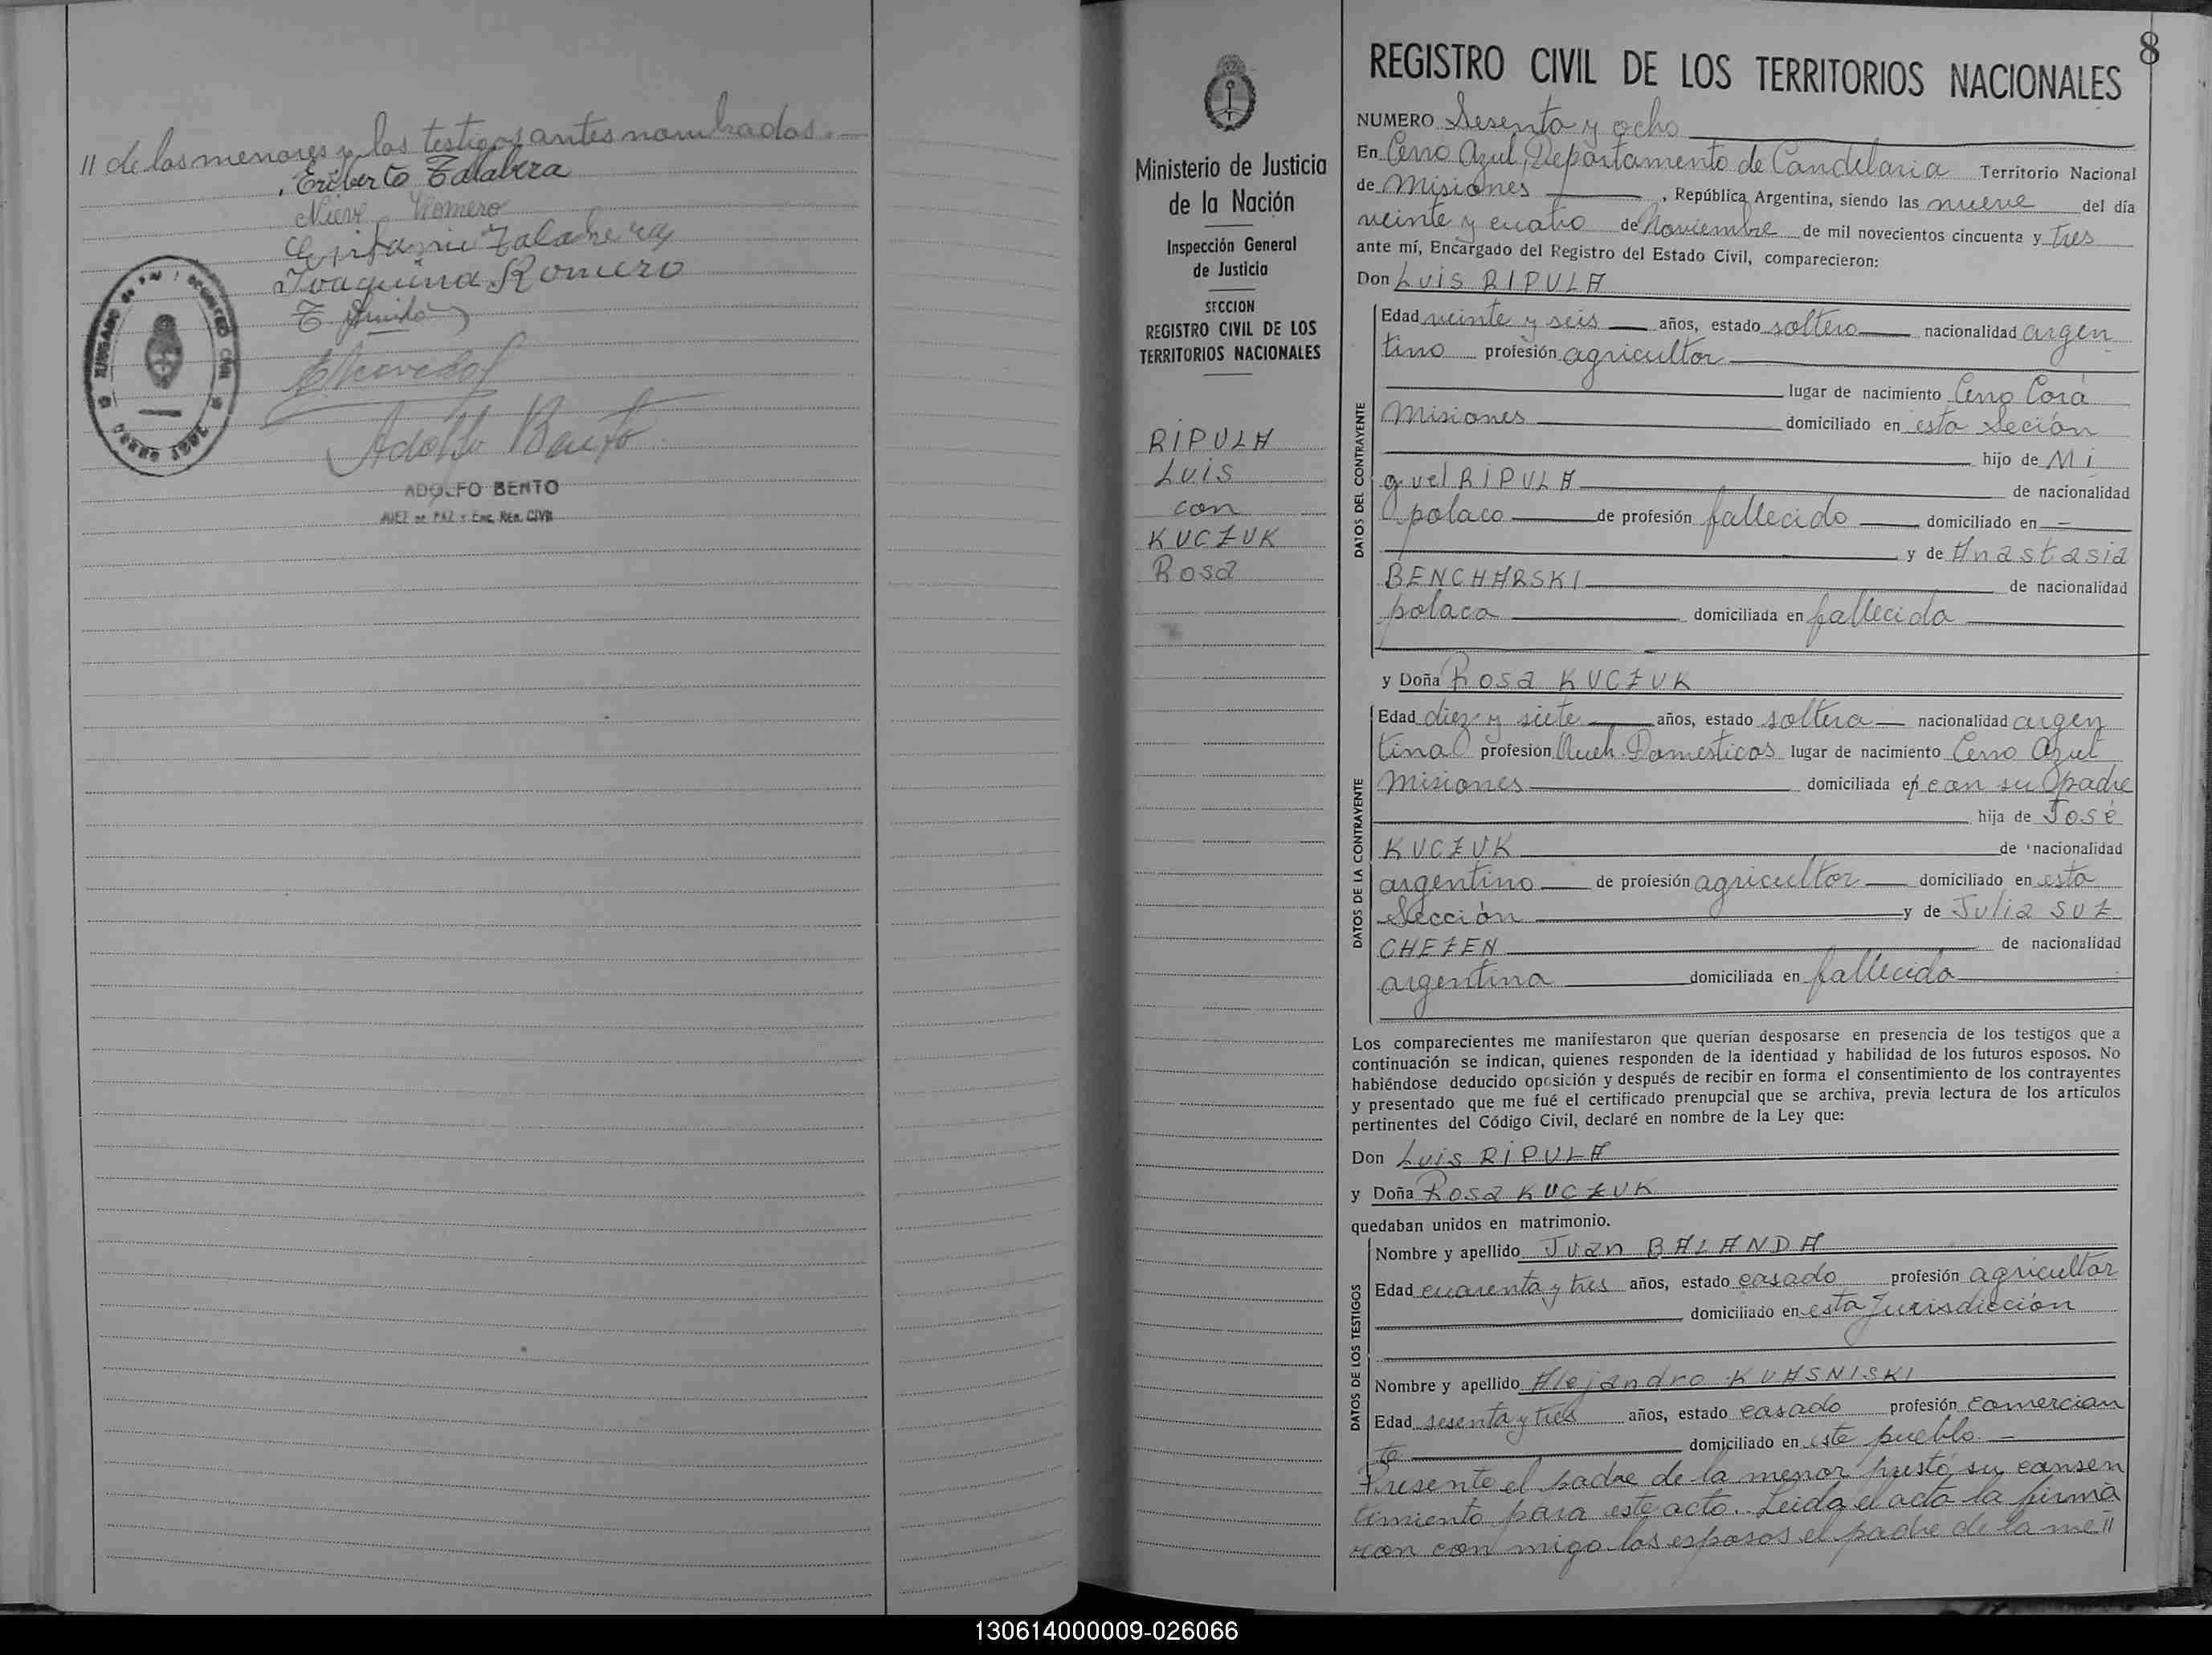 // de los menores y los testigos antes nombrados.—
Eriberto Talabera
Nieve Romero
Epifanio Talabera
Joaquina Romero
Adolfo Bento
ADOLFO BENTO
JUEZ DE PAZ y Enc. REG. CIVIL
8
Ministerio de Justicia
de la Nación
Inspección General
de Justicia
SECCION
REGISTRO CIVIL DE LOS
TERRITORIOS NACIONALES
RIPULA
Luis
con
KUCZUK
Rosa
REGISTRO CIVIL DE LOS TERRITORIOS NACIONALES
NUMERO Sesenta y ocho
En Cerro Azul, Departamento de Candelaria Territorio Nacional
de Misiones , República Argentina, siendo las nueve del día
veinte y cuatro de Noviembre de mil novecientos cincuenta y tres
ante mí, Encargado del Registro del Estado Civil, comparecieron:
Don Luis RIPULA
DATOS DEL CONTRAYENTE
Edad veinte y seis años, estado soltero nacionalidad argen
tino profesión agricultor
lugar de nacimiento Cerro Corá
Misiones domiciliado en esta Seción
hijo de Mi
guel RIPULA de nacionalidad
polaco de profesión fallecido domiciliado en —
y de Anastasia
BENCHARSKI de nacionalidad
polaca domiciliada en fallecida
y Doña Rosa KUCZUK
DATOS DE LA CONTRAYENTE
Edad diez y siete años, estado soltera nacionalidad argen
tina profesión Queh. Domesticos lugar de nacimiento Cerro Azul
Misiones domiciliada en con su padre
hija de José
KUCZUK de nacionalidad
argentino de profesión agricultor domiciliado en esta
Sección y de Julia SUZ
CHEZEN de nacionalidad
argentina domiciliada en fallecida
Los comparecientes me manifestaron que querían desposarse en presencia de los testigos que a
continuación se indican, quienes responden de la identidad y habilidad de los futuros esposos. No
habiéndose deducido oposición y después de recibir en forma el consentimiento de los contrayentes
y presentado que me fué el certificado prenupcial que se archiva, previa lectura de los artículos
pertinentes del Código Civil, declaré en nombre de la Ley que:
Don Luis RIPULA
y Doña Rosa KUCZUK
quedaban unidos en matrimonio.
DATOS DE LOS TESTIGOS
Nombre y apellido Juan BALANDA
Edad cuarenta y tres años, estado casado profesión agricultor
domiciliado en esta Jurisdicción
Nombre y apellido Alejandro KUASNISKI
Edad sesenta y tres años, estado casado profesión comercian
te domiciliado en este pueblo.—
Presente el padre de la menor prestó su consen
timiento para este acto. Leida el acta la firma
ron con migo los esposos el padre de la me //
130614000009-026066